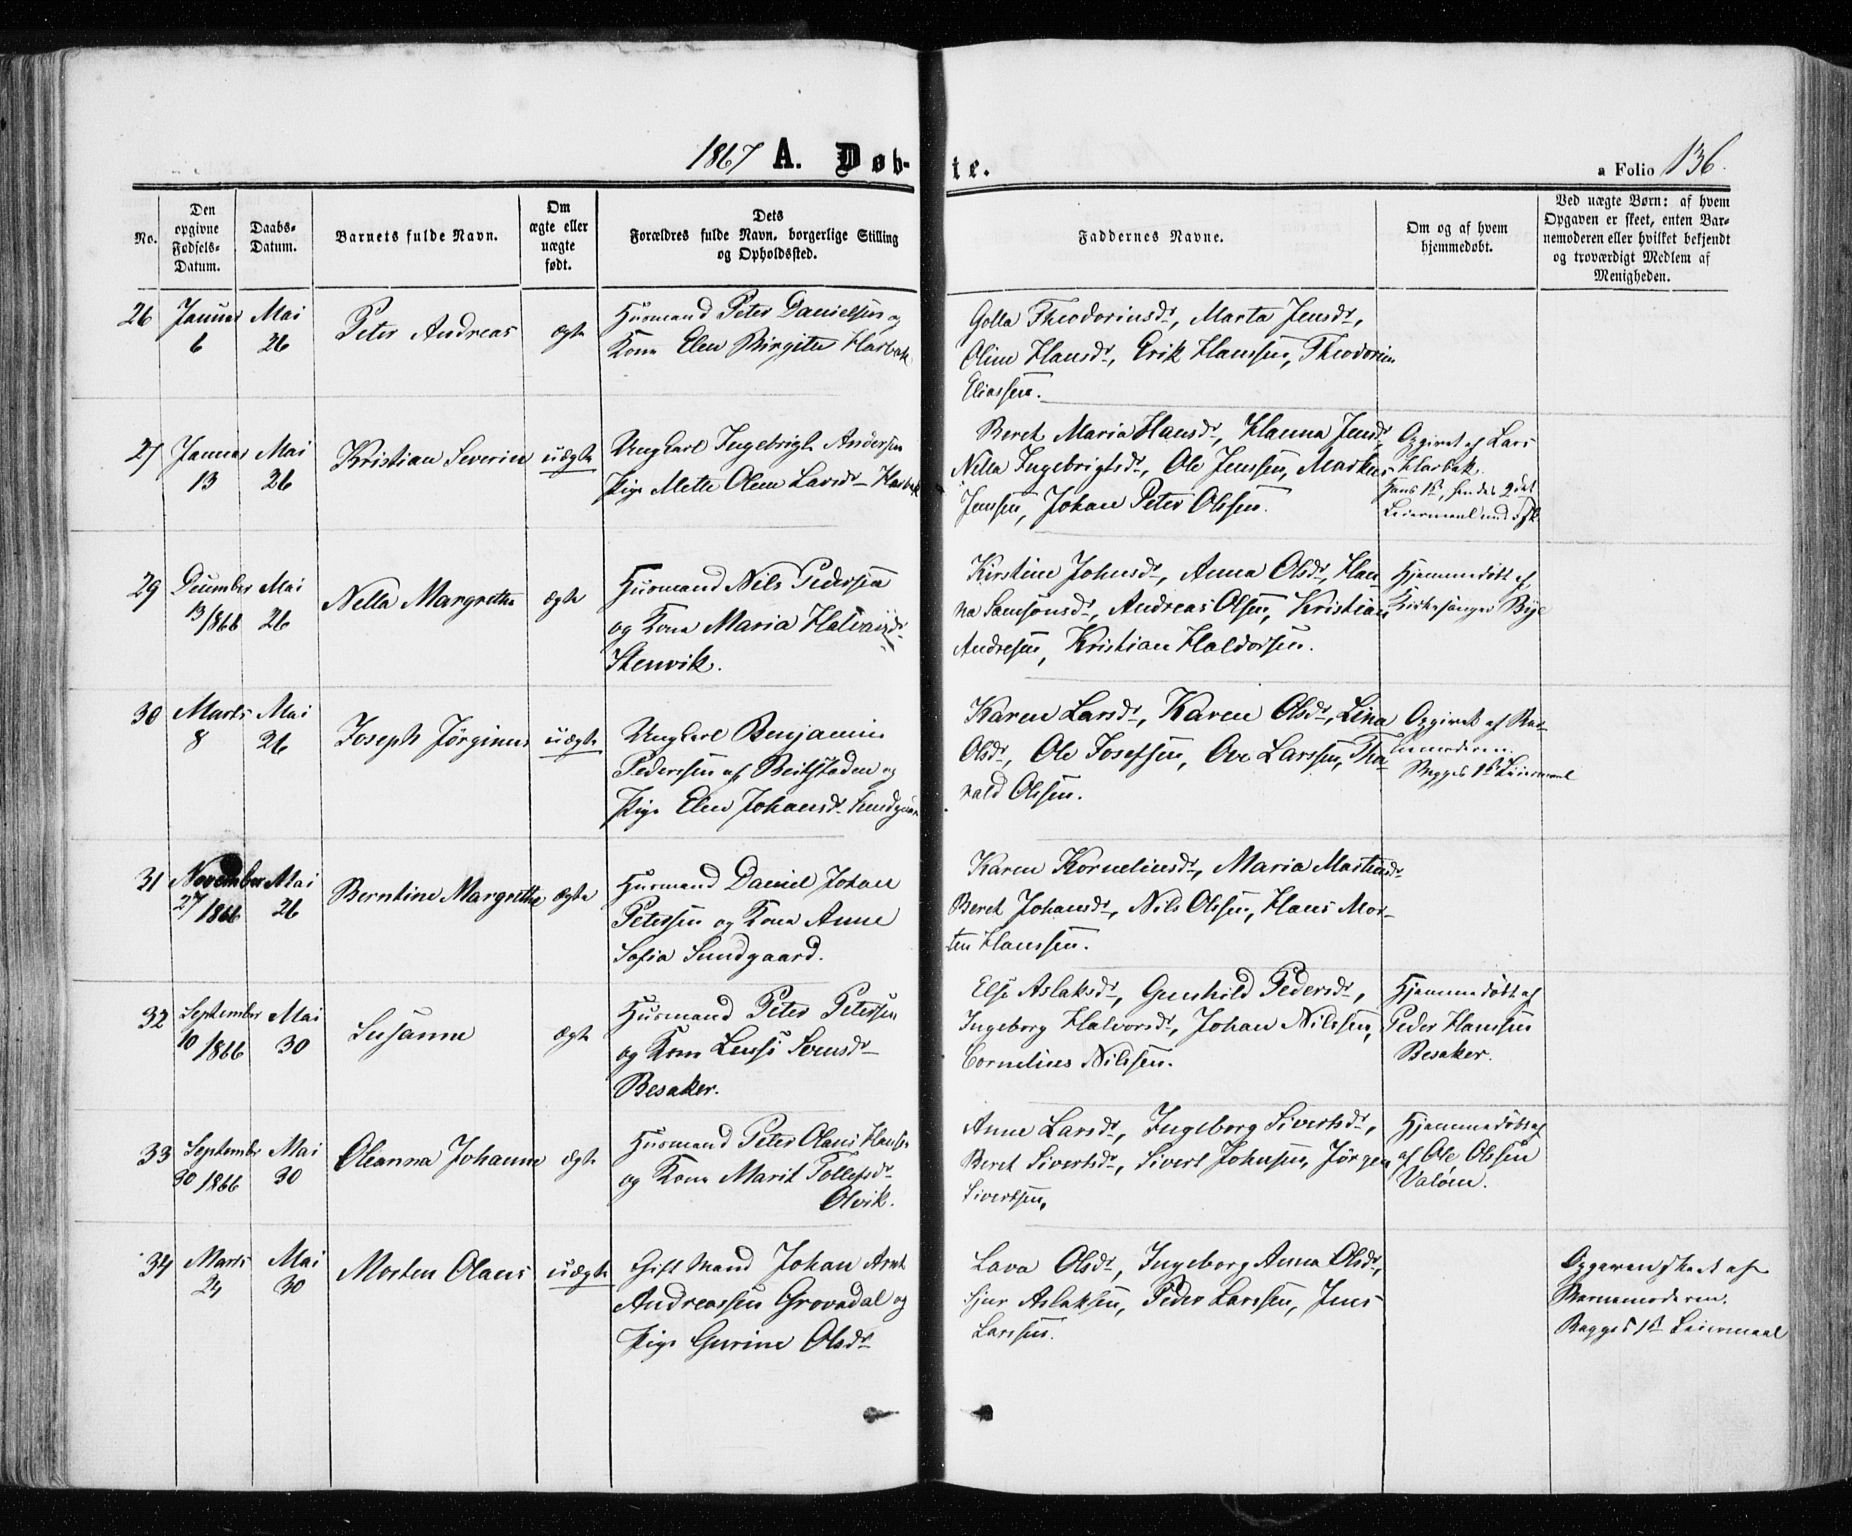 1867 A. Døb-te.
a Folio 136.
No.
Den opgivne Fødsels-Datum.
Daabs-Datum.
Barnets fulde Navn.
Om ægte eller uægte født.
Dets Forældres fulde Navn, borgerlige Stilling og Opholdssted.
Faddernes Navne.
Om og af hvem hjemmedøbt.
Ved uægte Børn: af hvem Opgaven er skeet, enten Barnemoderen eller hvilket bekjendt og troværdigt Medlem af Menigheden.
26 Januar 6 Mai 26 Peter Andreas ægte
Husmand Peter Danielsen og
Kone Elen Birgitte Harbak
Golla Theodoriusdr, Marta Jensdr,
Oline Hansdr, Erik Hanssen, Theodorius
Eliassen.
27 Januar 13 Mai 26 Kristian Severin uægte
Ungkarl Ingebrigt Andersen
Pige Mette Oline Larsdr Harbak
Beret Maria Hansdr, Hanna Jensdr,
Nella Ingebrigtsdr, Ole Jenssen, Markus
Jenssen, Johan Peter Olssen.
Opgivet af Lars
Harbak.
Hans 1st, hendes 2det
Leiermaal
29 December 13/1866 Mai 26 Nella Margrethe ægte
Husmand Nils Pedersen
og Kone Maria
Stenvik.
Kirstine Johnsdr, Anna Olsdr, Han-
na Samsonsdr, Andreas Olsen, Kristian
Andresen, Kristian Haldorsen.
Hjemmedøbt af
Kirkesanger Bye
30 Marts 8 Mai 26 Joseph Jørginus uægte
Ungkarl Benjamin
Pederssen af Beitstaden og
Pige Elen Johansdr Sundgaard
Karen Larsdr, Karen Olsdr, Lina
Olsdr, Ole Josefsen, Ove Larssen, Tho-
rald Olssen.
Opgivet af Bar-
nemoderen.
Begges 1st Leiermaal
31 November 27/1866 Mai 26 Berntine Margrethe ægte
Husmand Daniel Johan
Peterssen og Kone Anne
Sofia Sundgaard.
Karen Korneliusdr, Maria Mortensdr
Beret Johansdr, Nils Olssen, Hans Mor-
ten Hanssen.
32 September 10/1866 Mai 30 Susanne ægte
Husmand Peter Peterssen
og Kone Svensdr
Besaker.
Else Aslaksdr, Gunhild Pedersdr,
Ingeborg Halvorsdr, Johan Nilssen,
Cornelius Nilssen.
Hjemmedøbt af
Peder Hanssen
Besaker.
33 September 30/1866 Mai 30 Oleanna Johanne ægte
Husmand Peter Olaus Hanssen
og Kone Marit Tollefsdr
Olvik.
Anne Larsdr, Ingeborg Sivertsdr,
Beret Sivertsdr, Sivert Johnsen, Jørgen
Sivertsen,
Hjemmedøbt af
af Ole Olssen
Valøen.
34 Marts 24 Mai 30 Morten Olaus uægte
Gift Mand Johan Arnt
Andreassen Grovadal og
Pige Gurine Olsdr
Lava Olsdr, Ingeborg Anna Olsdr,
Sjur Aslaksen, Peder Larssen, Jens
Larssen.
Opgaven skeet af
Barnemoderen.
Begges 1st Leiermaal